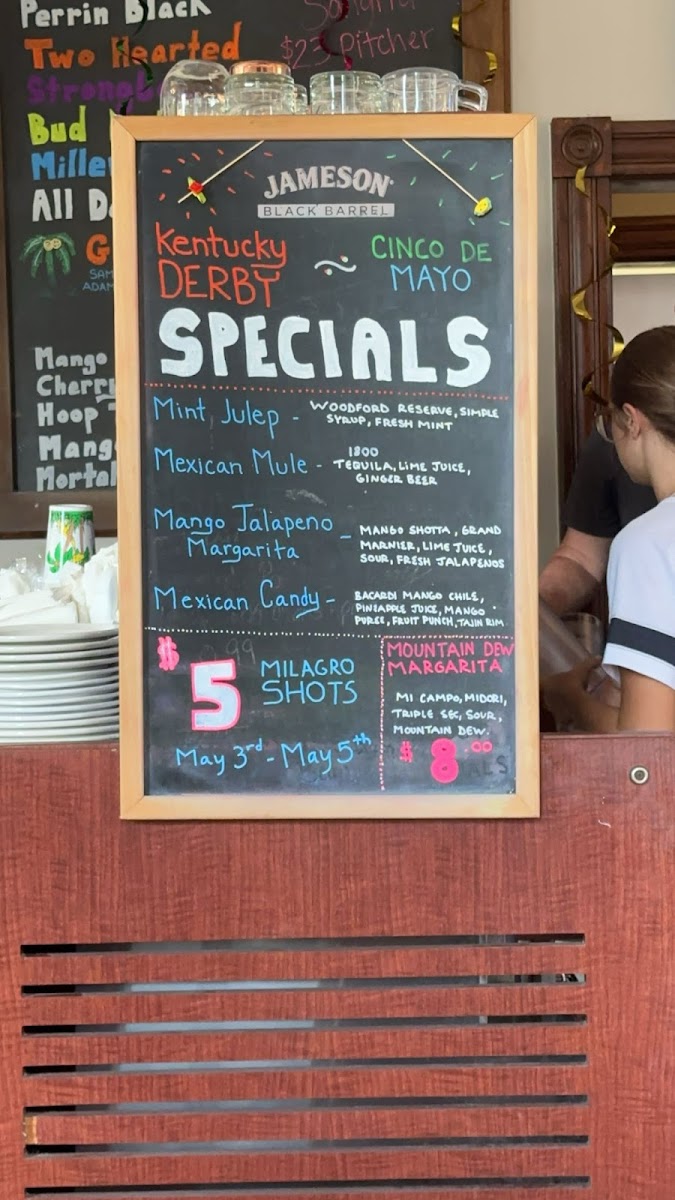 Perrin Black
Two Hearted
Bud
All
SAM
ADAM
Mango
Cherry
Hoop
Mang
Mortal
$23 Pitcher
JAMESON
BLACK BARREL
Kentucky
DERBY
~
CINCO DE
MAYO
SPECIALS
Mint Julep - WOODFORD RESERVE, SIMPLE
SYRUP, FRESH MINT
Mexican Mule - 1800
TEQUILA, LIME JUICE,
GINGER BEER
Mango Jalapeno
Margarita - MANGO SHOTTA, GRAND
MARNIER, LIME JUICE,
SOUR, FRESH JALAPENOS
Mexican Candy - BACARDI MANGO CHILE,
PINEAPPLE JUICE, MANGO
PUREE, FRUIT PUNCH, TAJIN RIM
$5 MILAGRO
SHOTS
May 3rd - May 5th
MOUNTAIN DEW
MARGARITA
MI CAMPO, MIDORI,
TRIPLE SEC, SOUR,
MOUNTAIN DEW.
$8.00